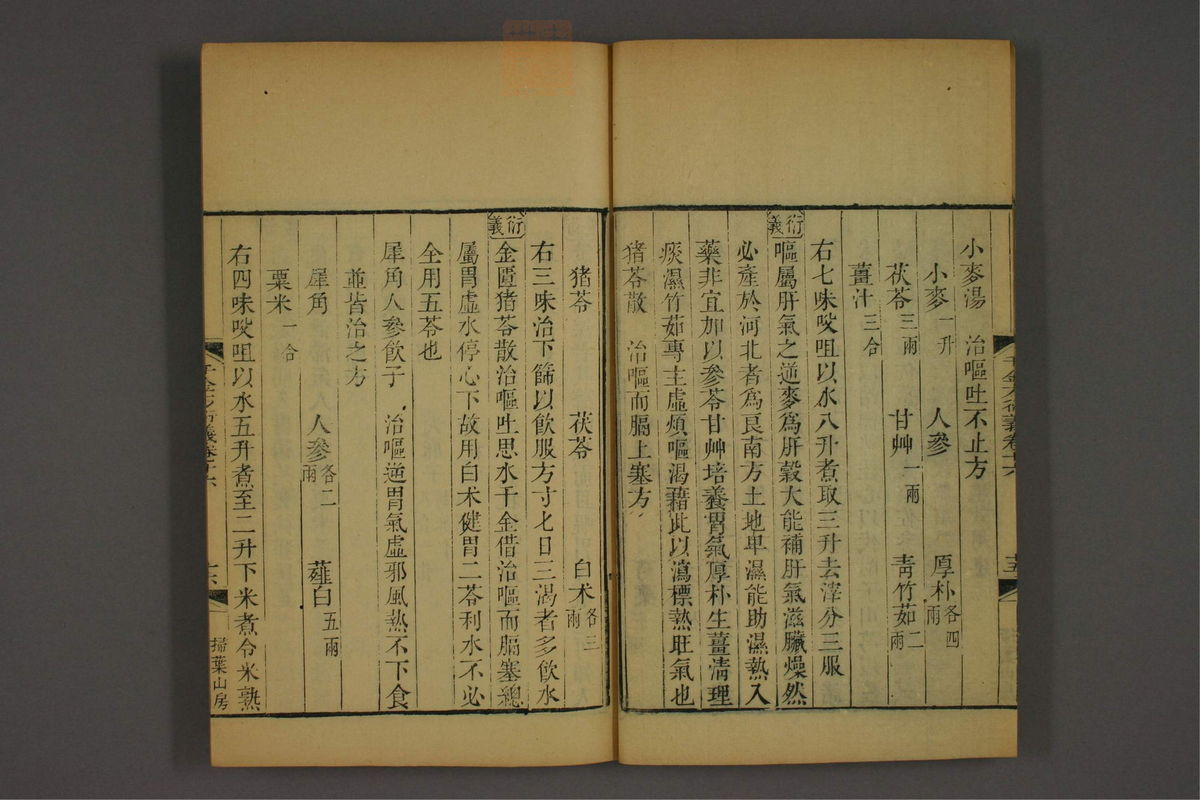 小麥湯　治嘔吐不止方
小麥一升　人參　厚朴各四兩
茯苓三兩　甘艸一兩　青竹茹二兩
薑汁三合
右七味㕮咀以水八升煮取三升去滓分三服
衍義
嘔屬肝氣之逆麥爲肝穀大能補肝氣滋臟燥然
必產於河北者爲良南方土地卑濕能助濕熱入
藥非宜加以參苓甘艸培養胃氣厚朴生薑清理
痰濕竹茹專主虛煩嘔渴藉此以瀉標熱旺氣也
猪苓散　治嘔而膈上塞方
猪苓　茯苓　白朮各三兩
右三味治下篩以飲服方寸匕日三渴者多飲水
衍義
金匱猪苓散治嘔吐思水千金借治嘔而膈塞總
屬胃虛水停心下故用白朮健胃二苓利水不必
全用五苓也
犀角人參飲子　治嘔逆胃氣虛邪風熱不下食
並皆治之方
犀角　人參各二兩　薤白五兩
粟米一合
右四味㕮咀以水五升煮至二升下米煮令米熟
掃葉山房